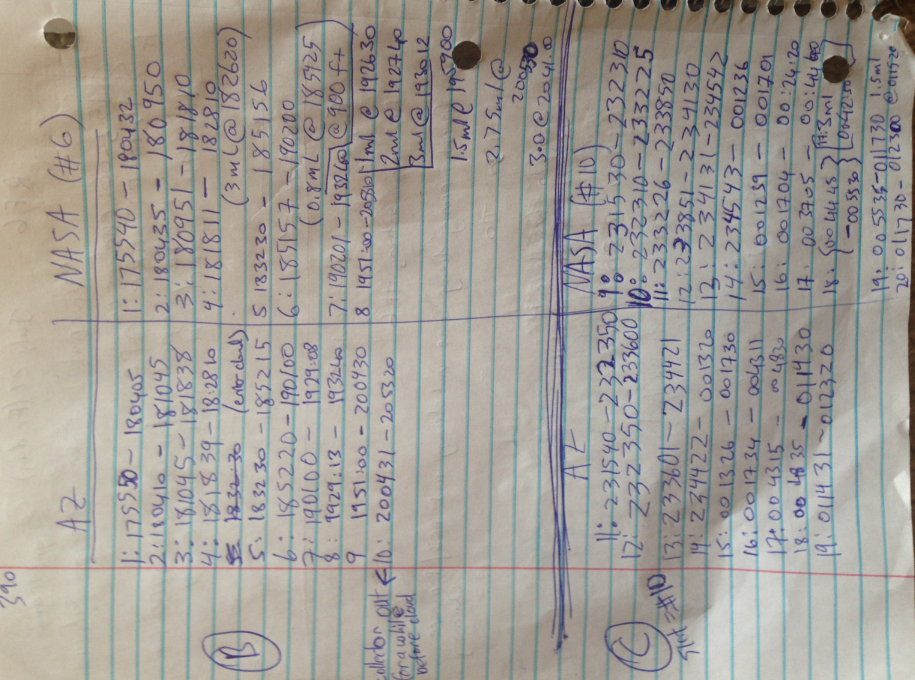 390
AZ
NASA (#6)
B
1: 175550 - 180405
2: 180410 - 181045
3: 181045 - 181838
4: 181839 - 182810
(enter cloud)
5: 183230 - 185215
6: 185220 - 190100
7: 190100 - 1929:08
8: 1929:13 - 193240
9 1951:00 - 200430
10: 200431 - 205320
collector out
for a while
before cloud
1: 175540 - 180432
2: 180435 - 180950
3: 180951 - 181810
4: 181811 - 182810
(3mL @ 182620)
5 183230 - 185156
6: 185157 - 190200
(0.8mL @ 185925)
7: 190201 - 193240 @ 900 ft
8 1951:00 - 205310
1ml @ 192630
2ml @ 192740
3ml @ 193012
1.5ml @ 195900
2.75ml @
3.0 @ 204100
C
Start → #10
AZ
NASA (#10)
11: 231540 - 232350
12: 232350 - 233600
13: 233601 - 234421
14: 234422 - 001320
15: 001326 - 001730
16: 001734 - 004311
17: 004315 - 004830
18: 004835 - 011430
19: 011431 - 012320
9: 231530 - 232310
10: 232310 - 233225
11: 233226 - 233850
12: 233851 - 234130
13: 234131 - 234542
14: 234543 - 001236
15: 001239 - 001701
16: 001704 - 00:24:20
17 003705 - 00:44:40
18: {004445 - 005530}
19: 005535 - 011730 1.5ml
20: 011730 - 012300